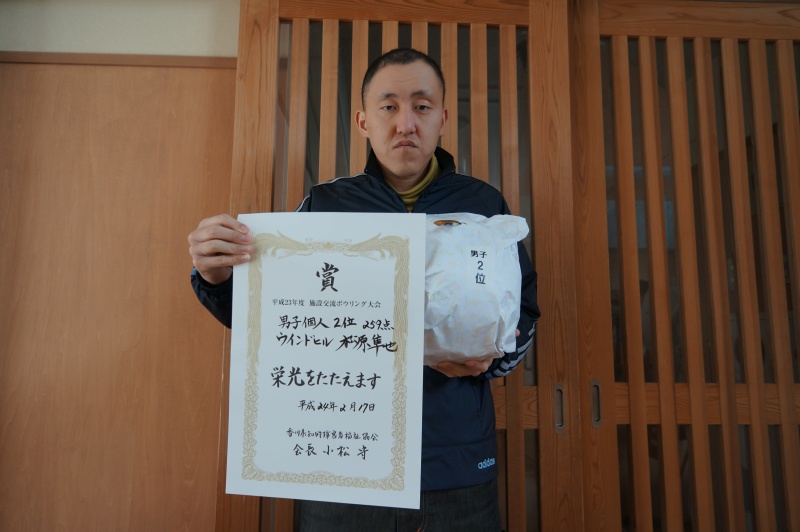 賞
平成23年度 施設交流ボウリング大会
男子個人 2位 259点
ウインドヒル 源隼也
栄光をたたえます
平成24年2月17日
香川県知的障害者福祉協会
会長 小松守
男子
2
位
adidas